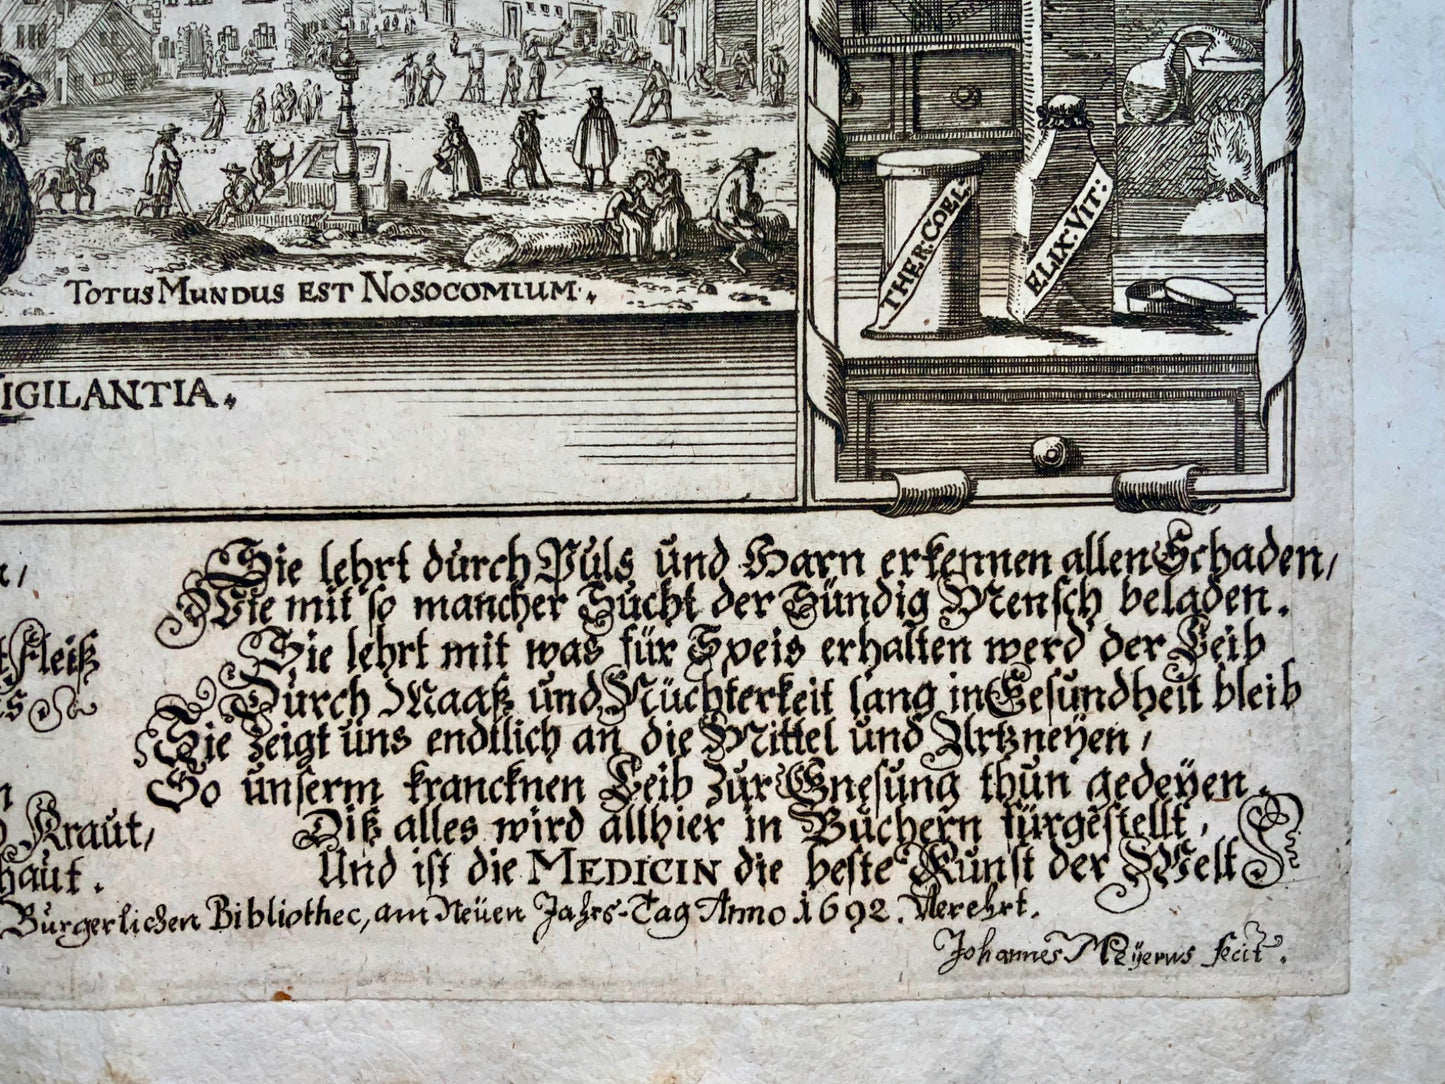 THER: COEL-
ELIX: VIT:
TOTUS MUNDUS EST NOSOCOMIUM.
VIGILANTIA.
Sie lehrt durch Puls und Harn erkennen allen Schaden,
Wie mit so mancher Sucht der Sündig Mensch beladen.
Sie lehrt mit was für Speis erhalten werd der Leib
Durch Maaß und Nüchterkeit lang in Gesundheit bleib
Sie Zeigt uns endtlich an die Mittel und Artzneÿen,
So unserm krancknen Leib Zur Gnesung thun gedeÿen.
Diß alles wird allhier in Büchern fürgestellt,
Und ist die MEDICIN die beste Kunst der Welt
Fleiß
Kraut,
haut.
Burgerlichen Bibliothec, am Neüen Jahrs-Tag Anno 1692. Verehrt.
Johannes Meÿerus fecit.